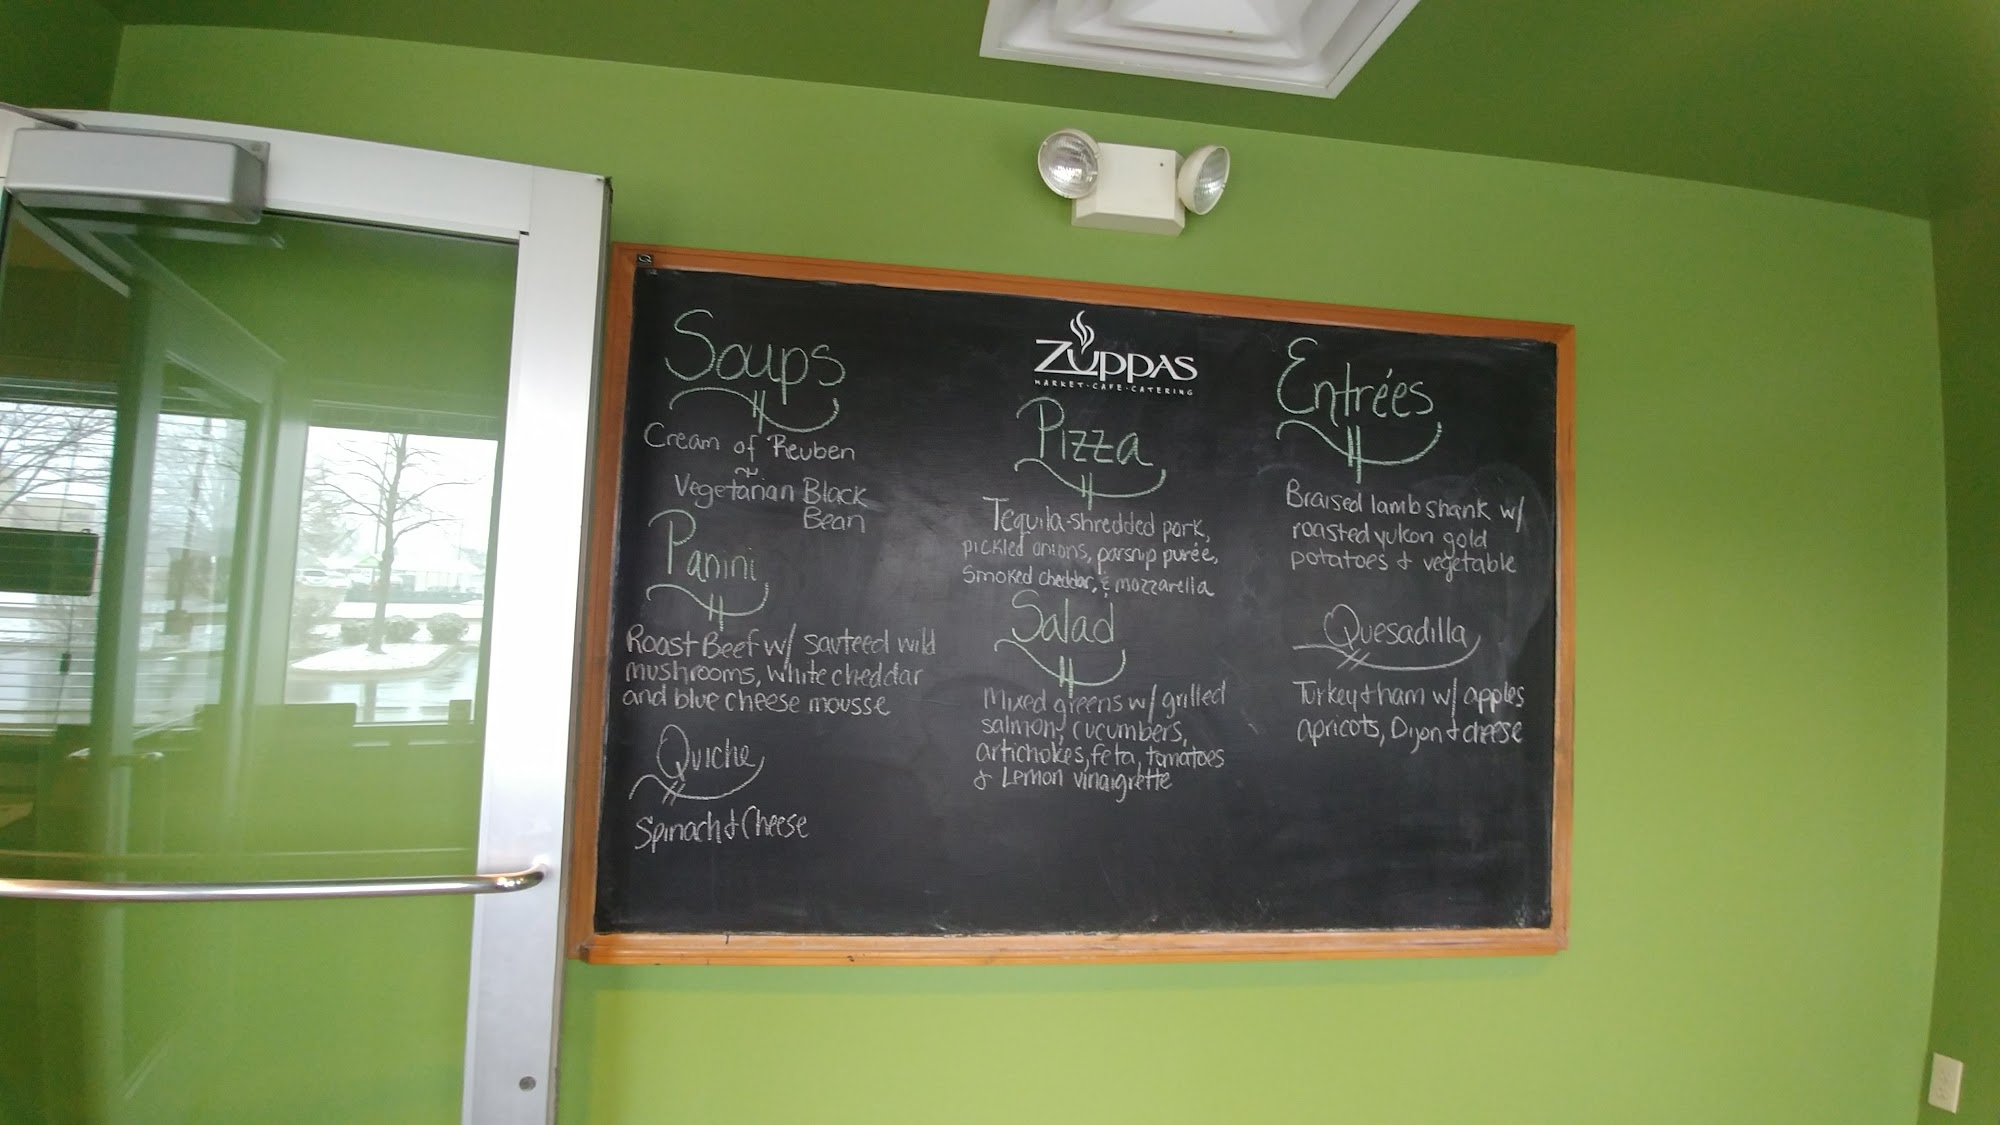 Soups
Cream of Reuben
~
Vegetarian Black
Bean
Panini
Roast Beef w/ sauteed wild
mushrooms, white cheddar
and blue cheese mousse
Quiche
Spinach & Cheese
ZUPPAS
MARKET · CAFE · CATERING
Pizza
Tequila-shredded pork,
pickled onions, parsnip purée,
Smoked cheddar, & mozzarella
Salad
Mixed greens w/ grilled
salmon, cucumbers,
artichokes, feta, tomatoes
& Lemon vinaigrette
Entrées
Braised lamb shank w/
roasted yukon gold
potatoes & vegetable
Quesadilla
Turkey & ham w/ apples
apricots, Dijon & cheese